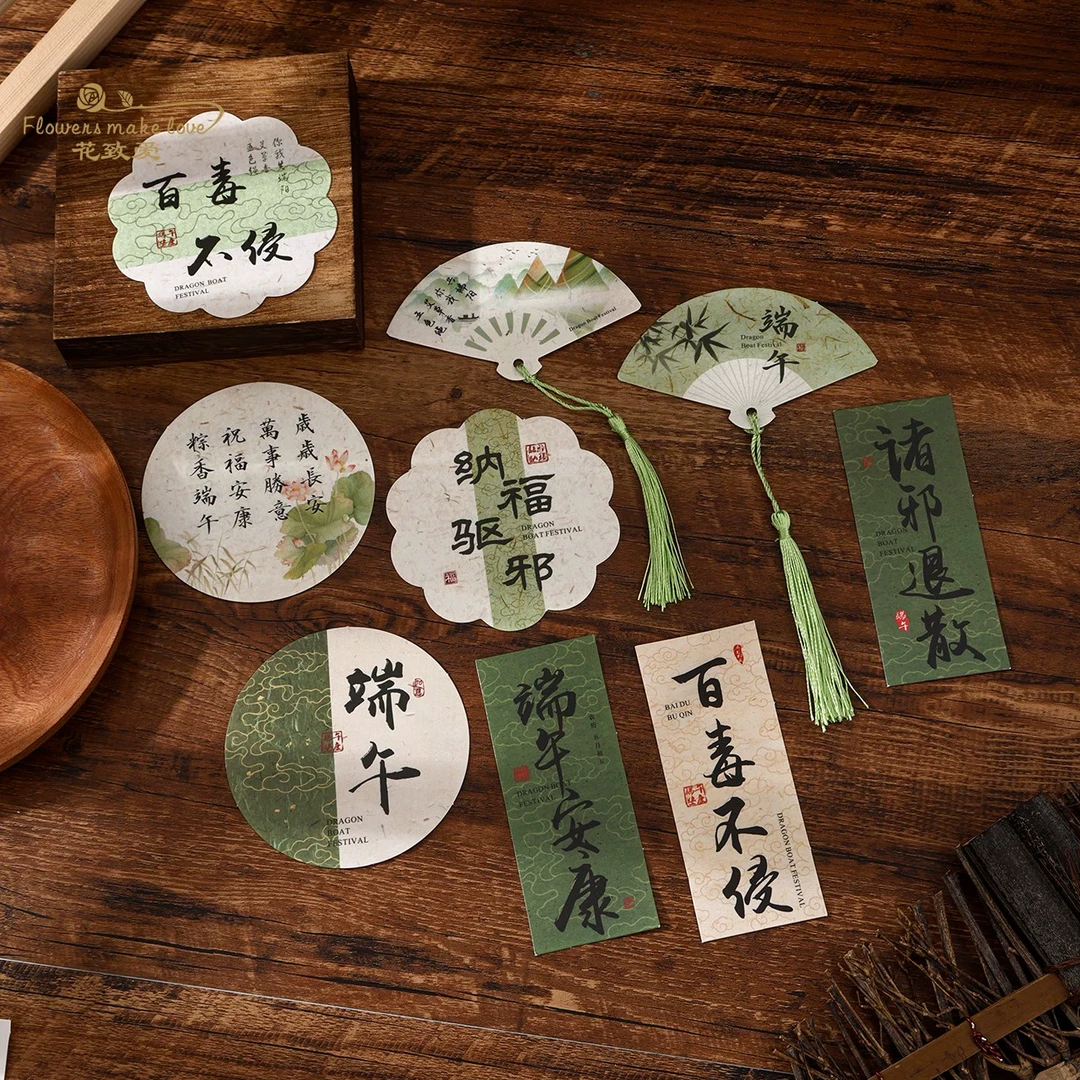 Flowers make love
花致爱
百毒
不侵
你我共端阳
艾草香
五色绳
DRAGON BOAT
FESTIVAL
Dragon Boat Festival
端午
Dragon
Boat Festival
歲歲長安
萬事勝意
祝福安康
粽香端午
纳福
驱邪
福
DRAGON
BOAT FESTIVAL
諸邪退散
DRAGON
BOAT
FESTIVAL
端午
端午
DRAGON
BOAT
FESTIVAL
端午安康
DRAGON BOAT
FESTIVAL
百毒不侵
BAI DU
BU QIN
DRAGON BOAT FESTIVAL